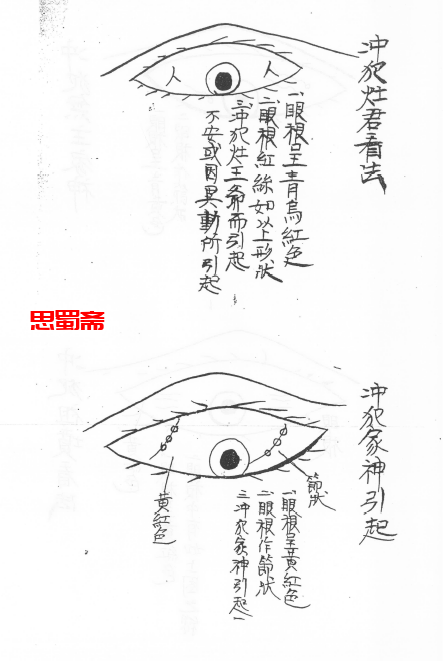 冲犯灶君看法
人
人
一、眼根呈青烏紅色
二、眼根紅絲如以上形狀
三、冲犯灶王爺而引起
不安或因異動所引起
思蜀斋
冲犯家神引起
節狀
一、眼根呈黄紅色
二、眼根作節狀
三、冲犯家神引起
黄紅色